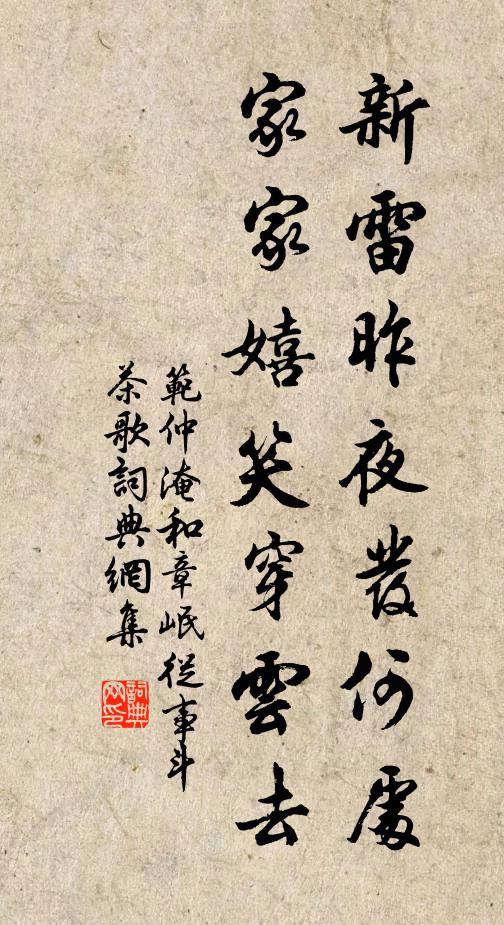 新雷昨夜發何處
家家嬉笑穿雲去
範仲淹和章岷從事斗
茶歌詞典網集
詞典網印